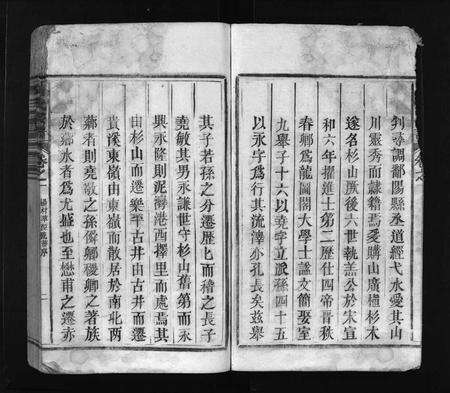 判尋調鄱陽縣丞道經弋水愛其山
川靈秀而隸籍焉爰購山廣植杉木
遂名杉山厥後六世執蓋公於宋宣
和六年擢進士第二歷仕四帝晉秩
春卿爲龍圖閣大學士諡文簡娶室
九舉子十六以堯字立派孫四十五
以永字爲行其流澤亦孔長矣茲舉
其子若孫之分遷歷歷而稽之長子
堯敏其男永謙世守杉山舊第而永
興永隆則泥灣港西擇里而處焉其
由杉山而遷樂平古井由古井而遷
貴溪東嶺由東嶺而散居於南北兩
鄰者則堯敬之孫儕卿稷卿之著族
於鄰水者爲尤盛也至懋甫之遷亦